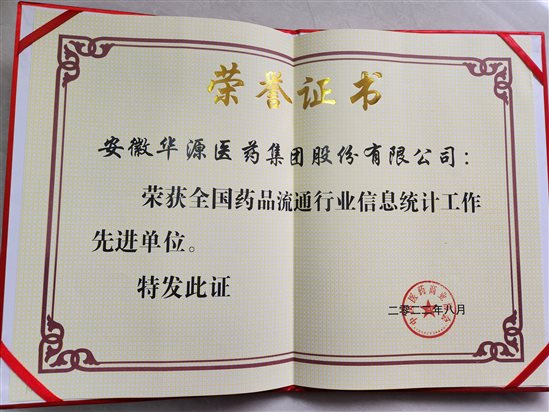 荣誉证书
安徽华源医药集团股份有限公司：
荣获全国药品流通行业信息统计工作
先进单位。
特发此证
中国医药商业协会
二零二年八月